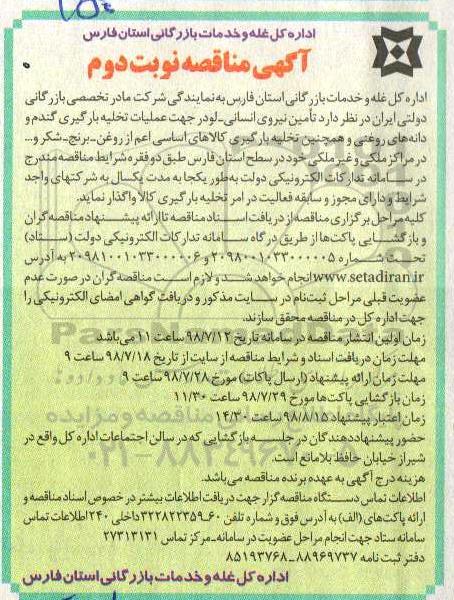 اداره کل غله و خدمات بازرگانی استان فارس
آگهی مناقصه نوبت دوم
اداره کل غله و خدمات بازرگانی استان فارس به نمایندگی شرکت مادر تخصصی بازرگانی
دولتی ایران در نظر دارد تأمین نیروی انسانی-لودر جهت عملیات تخلیه بارگیری گندم و
دانه‌های روغنی و همچنین تخلیه بارگیری کالاهای اساسی اعم از روغن-برنج-شکر و...
در مراکز ملکی و غیر ملکی خود در سطح استان فارس طبق دو فقره شرایط مناقصه مندرج
در سامانه تدارکات الکترونیکی دولت به‌طور یکجا به مدت یکسال به شرکتهای واجد
شرایط و دارای مجوز و سابقه فعالیت در امر تخلیه بارگیری کالا واگذار نماید.
کلیه مراحل برگزاری مناقصه از دریافت اسناد مناقصه تا ارائه پیشنهاد مناقصه گران
و بازگشایی پاکت‌ها از طریق درگاه سامانه تدارکات الکترونیکی دولت (ستاد)
تحت شماره ۲۰۹۸۰۰۱۰۳۳۰۰۰۰۰۵ و ۲۰۹۸۱۰۰۱۰۳۳۰۰۰۰۰۶ به آدرس
www.setadiran.ir انجام خواهد شد و لازم است مناقصه گران در صورت عدم
عضویت قبلی مراحل ثبت‌نام در سایت مذکور و دریافت گواهی امضای الکترونیکی را
جهت اداره کل در مناقصه محقق سازند.
زمان اولین انتشار مناقصه در سامانه تاریخ ۹۸/۷/۱۲ ساعت ۱۱ می‌باشد
مهلت زمان دریافت اسناد و شرایط مناقصه از سایت از تاریخ ۹۸/۷/۱۸ ساعت ۹
مهلت زمان ارائه پیشنهاد (ارسال پاکات) مورخ ۹۸/۷/۲۸ ساعت ۹
زمان بازگشایی پاکت‌ها مورخ ۹۸/۷/۲۹ ساعت ۱۱/۳۰
زمان اعتبار پیشنهاد ساعت ۱۴/۳۰
حضور پیشنهاد دهندگان در جلسه بازگشایی که در سالن اجتماعات اداره کل واقع در
شیراز خیابان حافظ بلامانع است.
هزینه درج آگهی به عهده برنده مناقصه می‌باشد.
اطلاعات تماس دستگاه مناقصه گزار جهت دریافت اطلاعات بیشتر در خصوص اسناد مناقصه و
ارائه پاکت‌های (الف) به آدرس فوق و شماره تلفن ۶۰-۳۲۲۸۲۲۳۵۹ داخلی ۲۴۰ اطلاعات تماس
سامانه ستاد جهت انجام مراحل عضویت در سامانه-مرکز تماس ۲۷۳۱۳۱۳۱
دفتر ثبت نامه ۸۸۹۶۹۷۳۷-۸۵۱۹۳۷۶۸
اداره کل غله و خدمات بازرگانی استان فارس